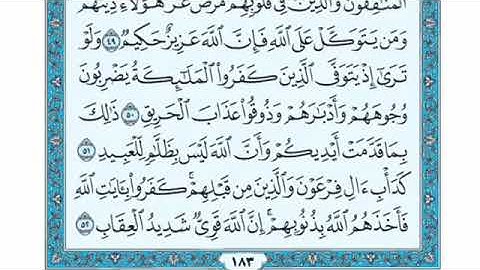 ٱلْمُنَٰفِقُونَ وَٱلَّذِينَ فِى قُلُوبِهِم مَّرَضٌ غَرَّ هَٰٓؤُلَآءِ دِينُهُمْ
وَمَن يَتَوَكَّلْ عَلَى ٱللَّهِ فَإِنَّ ٱللَّهَ عَزِيزٌ حَكِيمٌ ٤٩ وَلَوْ
تَرَىٰٓ إِذْ يَتَوَفَّى ٱلَّذِينَ كَفَرُوا۟ ٱلْمَلَٰٓئِكَةُ يَضْرِبُونَ
وُجُوهَهُمْ وَأَدْبَٰرَهُمْ وَذُوقُوا۟ عَذَابَ ٱلْحَرِيقِ ٥٠ ذَٰلِكَ
بِمَا قَدَّمَتْ أَيْدِيكُمْ وَأَنَّ ٱللَّهَ لَيْسَ بِظَلَّٰمٍ لِّلْعَبِيدِ ٥١
كَدَأْبِ ءَالِ فِرْعَوْنَ وَٱلَّذِينَ مِن قَبْلِهِمْ ۚ كَفَرُوا۟ بِـَٔايَٰتِ ٱللَّهِ
فَأَخَذَهُمُ ٱللَّهُ بِذُنُوبِهِمْ ۗ إِنَّ ٱللَّهَ قَوِىٌّ شَدِيدُ ٱلْعِقَابِ ٥٢
١٨٣